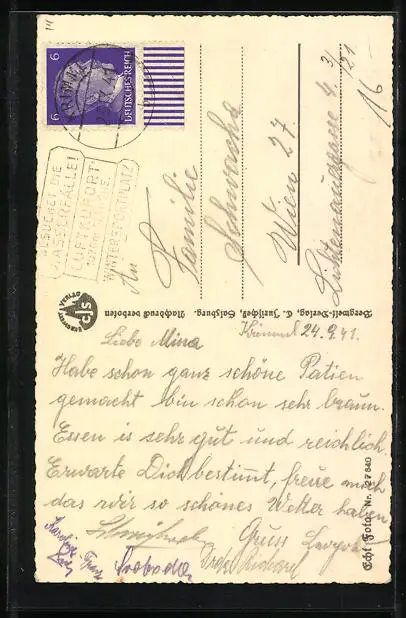 14
6 DEUTSCHES REICH 6
KRIMML
BESUCHET DIE
WASSERFÄLLE!
LUFTKURORT
WINTERSPORTPLATZ
3/21
16-
An
Familie
Schwachs
Wien 27
Lichtenauergasse 4.
Bergwelt-Verlag, C. Jurischek, Salzburg. Nachdruck verboten
BERGWELT VERLAG
CJS
Krimml 24.9.41.
Liebe Mina
Habe schon ganz schöne Patien
gemacht bin schon sehr braun.
Essen is sehr gut und reichlich
Erwarte Dich bestimmt, freue mich
das wir so schönes Wetter haben
Gruss Leopold
Karoline Franz Svoboda
Richard
Echt Foto: Nr. 27640